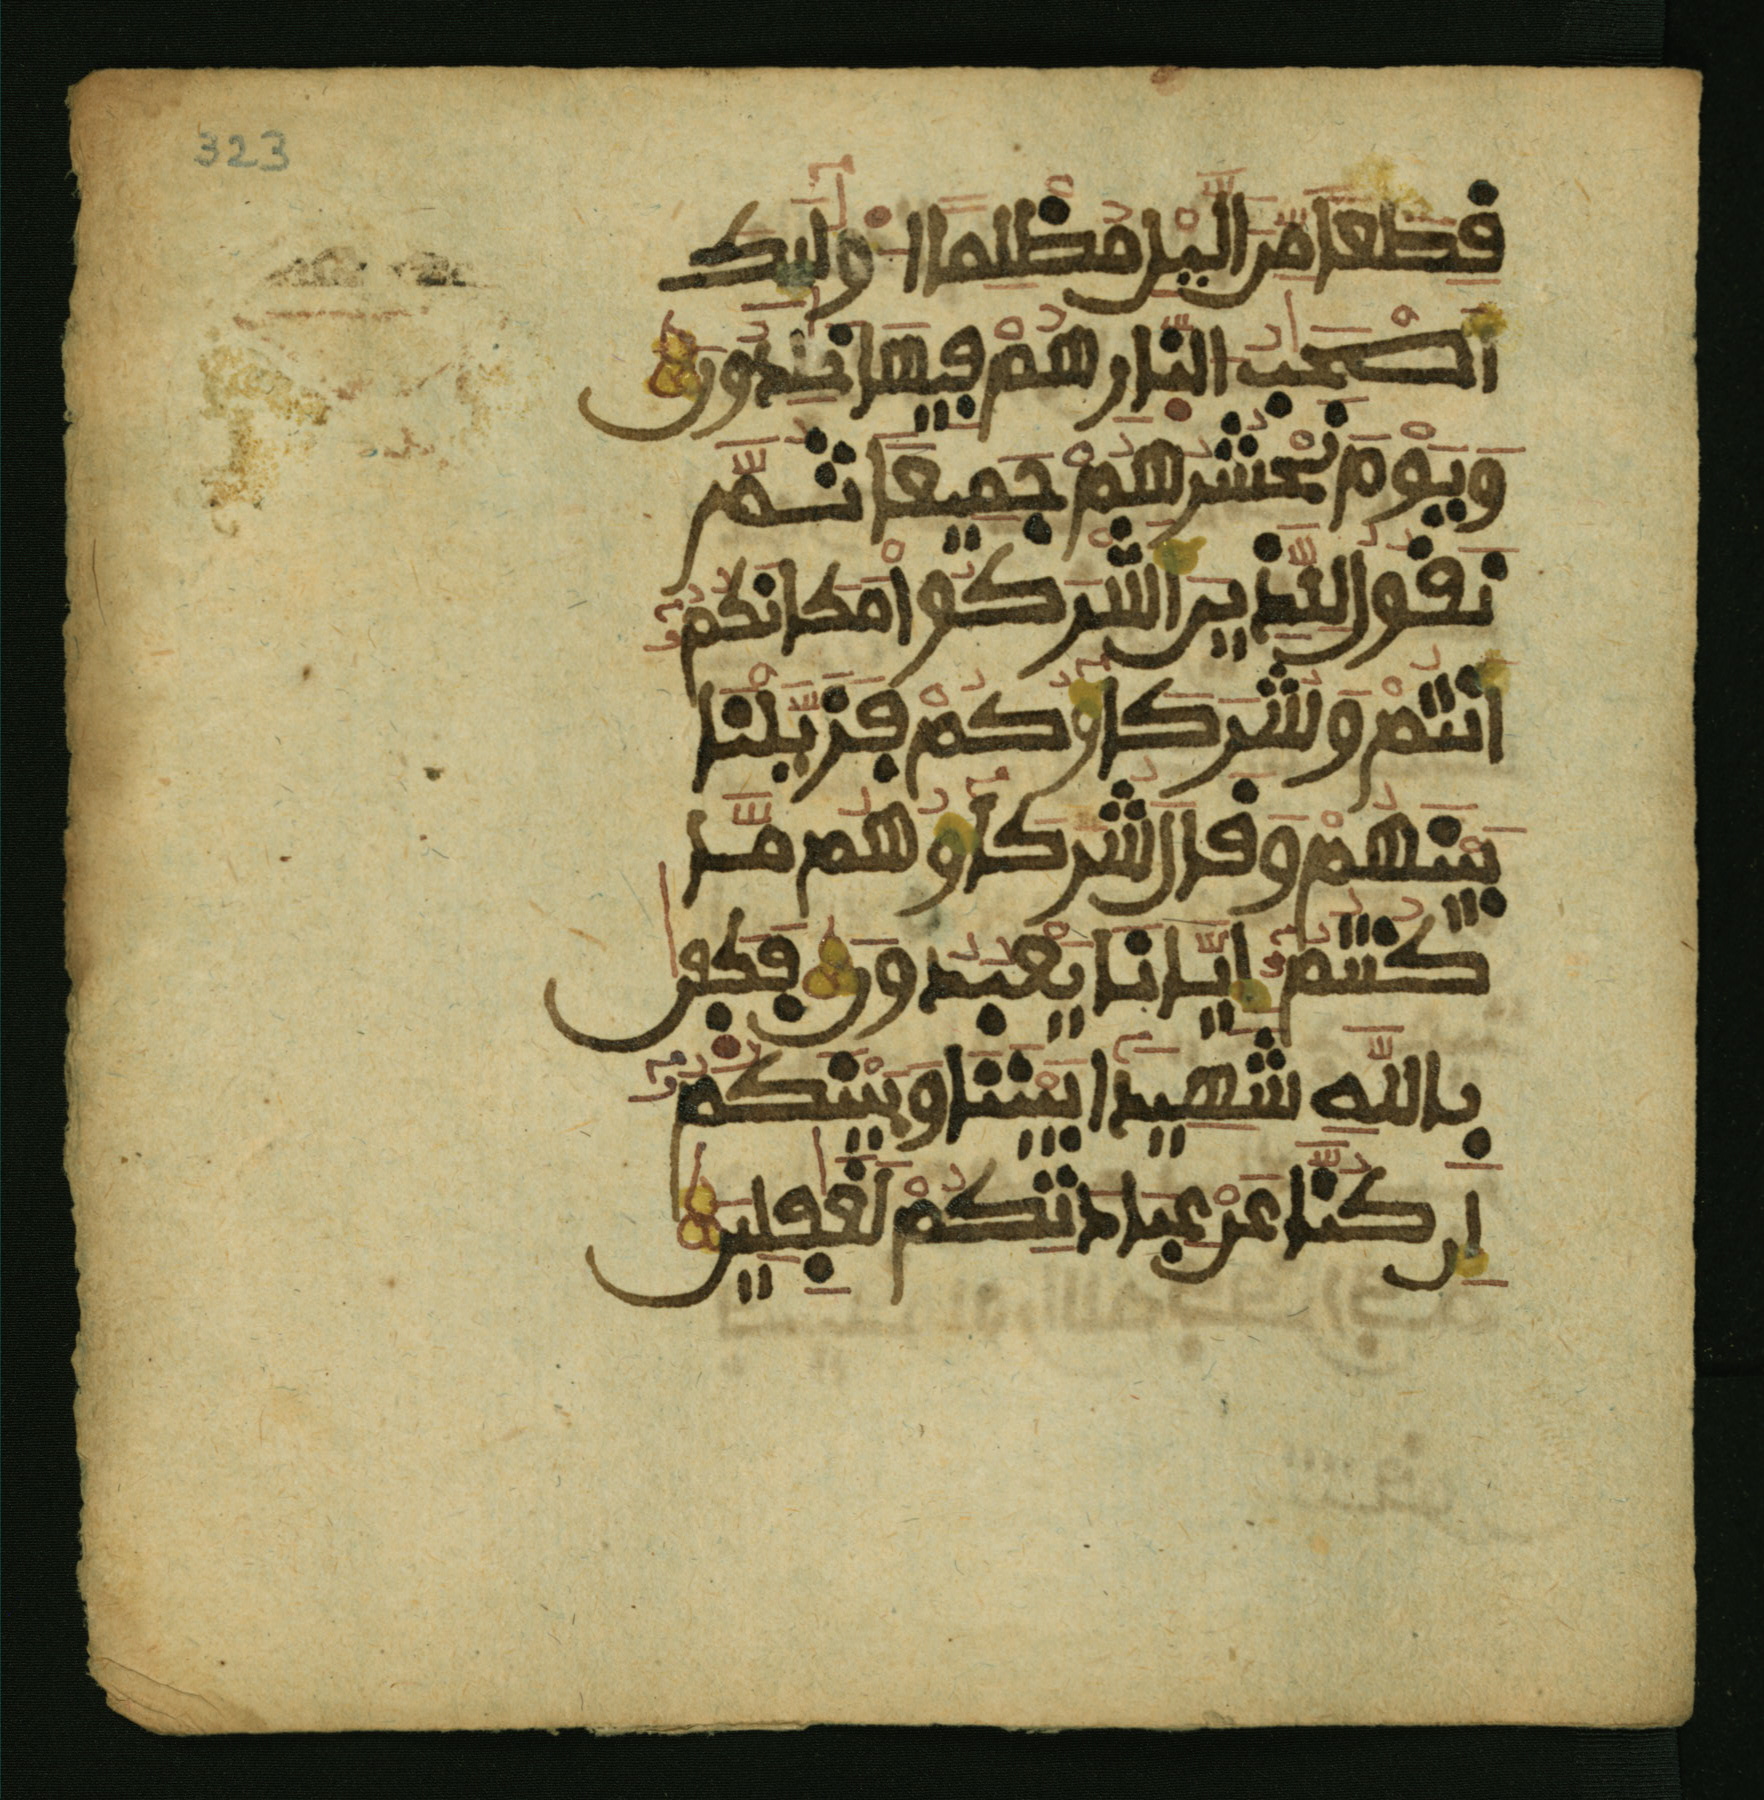 323
قِطَعًا مِّنَ الَّيْلِ مُظْلِمًا اوْلَٰٓئِكَ
أَصْحَٰبُ النَّارِ هُمْ فِيهَا خَٰلِدُونَ
وَيَوْمَ نَحْشُرُهُمْ جَمِيعًا ثُمَّ
نَقُولُ لِلَّذِينَ أَشْرَكُوا مَكَانَكُمُۥٓ
أَنتُمْ وَشُرَكَآؤُكُمْ فَزَيَّلْنَا
بَيْنَهُمْ وَقَالَ شُرَكَآؤُهُم مَّا
كُنتُمُۥٓ إِيَّانَا تَعْبُدُونَ فَكَفَىٰ
بِاللَّهِ شَهِيدًا بَيْنَنَا وَبَيْنَكُمُۥٓ
إِن كُنَّا عَنْ عِبَادَتِكُمْ لَغَٰفِلِينَ